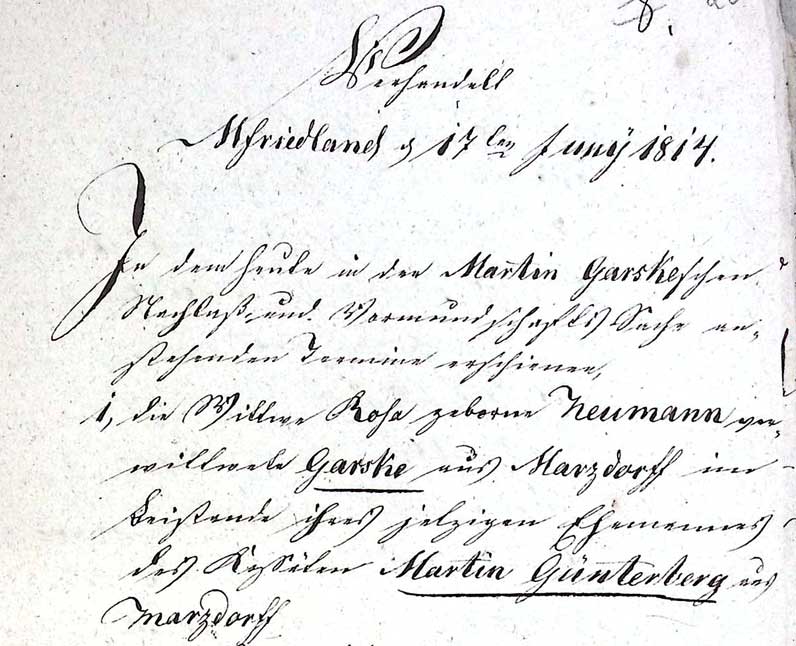 8.
Verhandelt
Mfriedland d 17ten Juny 1814.
In dem heute in der Martin Garskeschen
Nachlaß- und Vormundschafts Sache an-
stehenden Termine erschienen,
1, die Wittwe Rosa geborne Neumann ver-
wittwete Garske aus Marzdorff im
Beistande ihres jetzigen Ehemannes
des Kossäten Martin Günterberg aus
Marzdorff